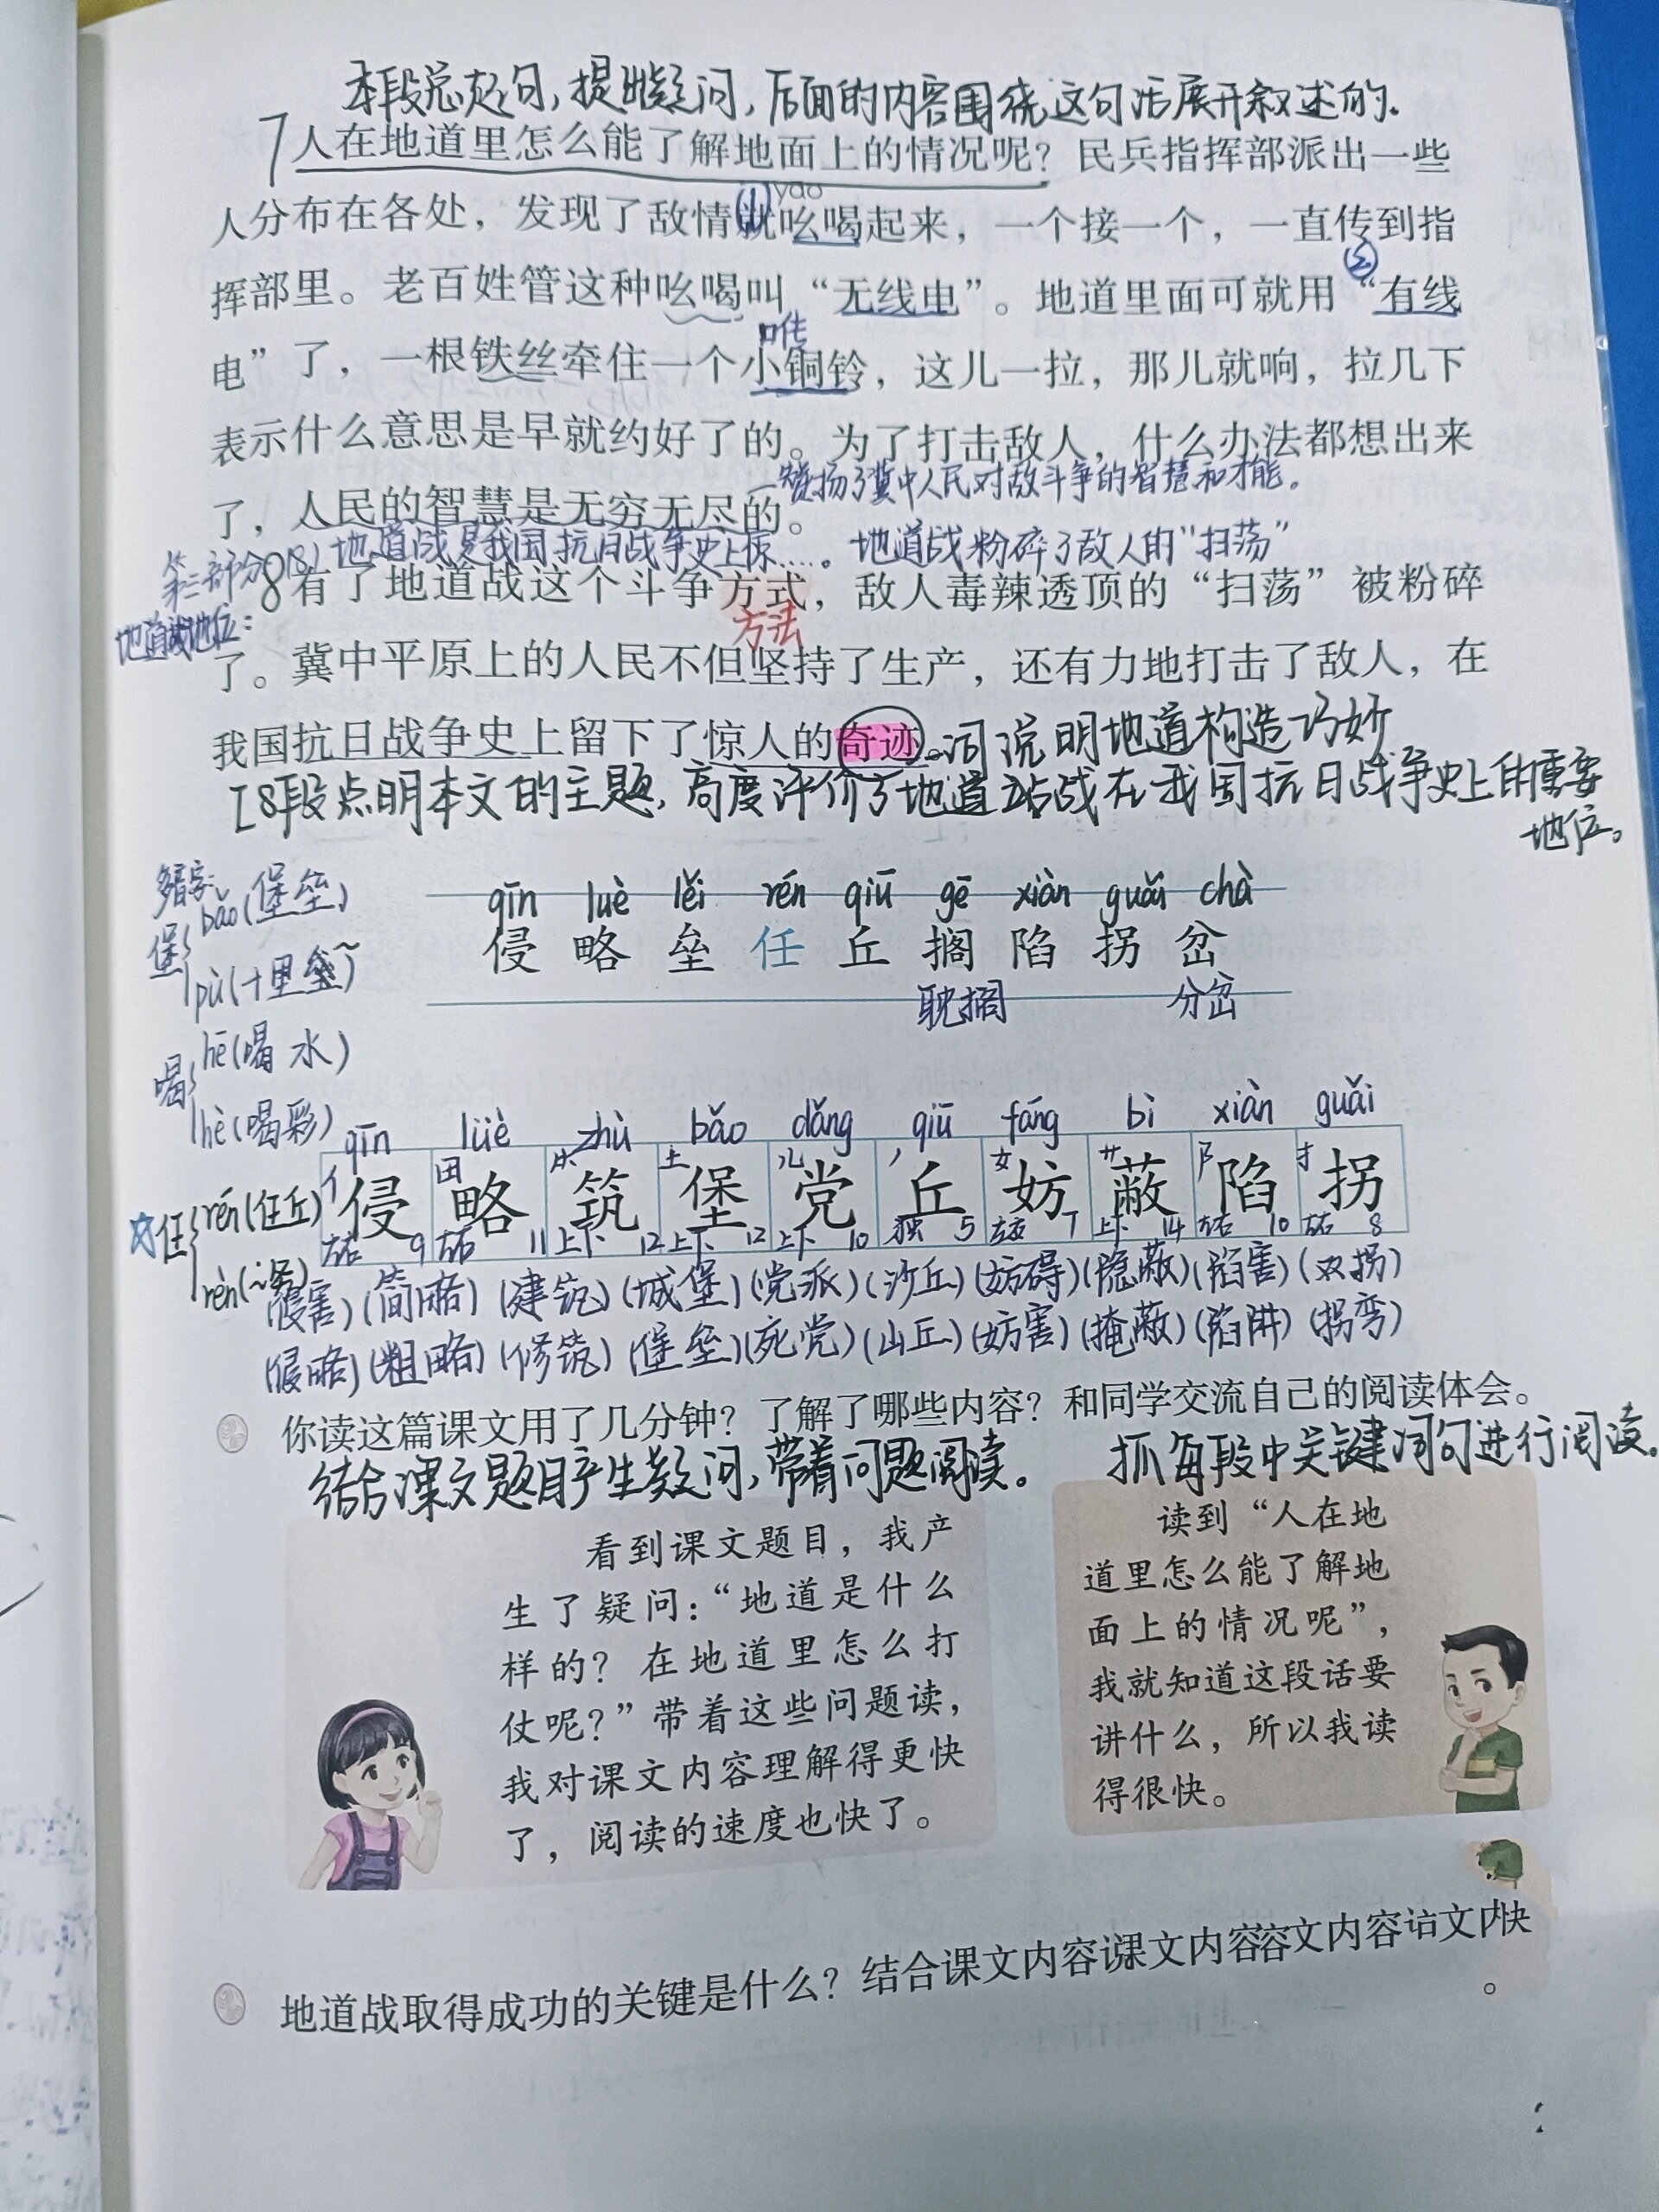 本段总起句,提出疑问,后面的内容围绕这句话展开叙述的.
7人在地道里怎么能了解地面上的情况呢？民兵指挥部派出一些
① yāo
人分布在各处，发现了敌情就吆喝起来，一个接一个，一直传到指
②
挥部里。老百姓管这种吆喝叫“无线电”。地道里面可就用“有线
电”了，一根铁丝牵住一个小铜铃，这儿一拉，那儿就响，拉几下
表示什么意思是早就约好了的。为了打击敌人，什么办法都想出来
赞扬了冀中人民对敌斗争的智慧和才能。
了，人民的智慧是无穷无尽的。
第三部分(8)地道战是我国抗日战争史上惊……。地道战粉碎了敌人的"扫荡"
8有了地道战这个斗争方式，敌人毒辣透顶的“扫荡”被粉碎
地道战地位:
方法
了。冀中平原上的人民不但坚持了生产，还有力地打击了敌人，在
我国抗日战争史上留下了惊人的奇迹。词说明地道构造巧妙
[8段点明本文的主题,高度评价了地道战在我国抗日战争史上的重要
地位。
多音字:
堡 bǎo(堡垒)
pù(十里~)
qīn luè lěi rén qiū gē xiàn guǎi chà
侵 略 垒 任 丘 搁 陷 拐 岔
耽搁 分岔
喝 hē(喝水)
hè(喝彩)
qīn lüè zhù bǎo dǎng qiū fáng bì xiàn guǎi
亻 田 土 儿 丿 女 艹 阝 扌
侵 略 筑 堡 党 丘 妨 蔽 陷 拐
左右 9 左右 11 上下 12 上下 12 上下 10 独 5 左右 7 上下 14 左右 10 左右 8
☆任 rén(任丘)
rèn
(侵害)(简略)(建筑)(城堡)(党派)(沙丘)(妨碍)(隐蔽)(陷害)(双拐)
(侵略)(粗略)(修筑)(堡垒)(死党)(山丘)(妨害)(掩蔽)(陷阱)(拐弯)
你读这篇课文用了几分钟？了解了哪些内容？和同学交流自己的阅读体会。
结合课文题目产生疑问,带着问题阅读。 抓每段中关键词句进行阅读。
看到课文题目，我产
生了疑问：“地道是什么
样的？在地道里怎么打
仗呢？”带着这些问题读，
我对课文内容理解得更快
了，阅读的速度也快了。
读到“人在地
道里怎么能了解地
面上的情况呢”，
我就知道这段话要
讲什么，所以我读
得很快。
地道战取得成功的关键是什么？结合课文内容